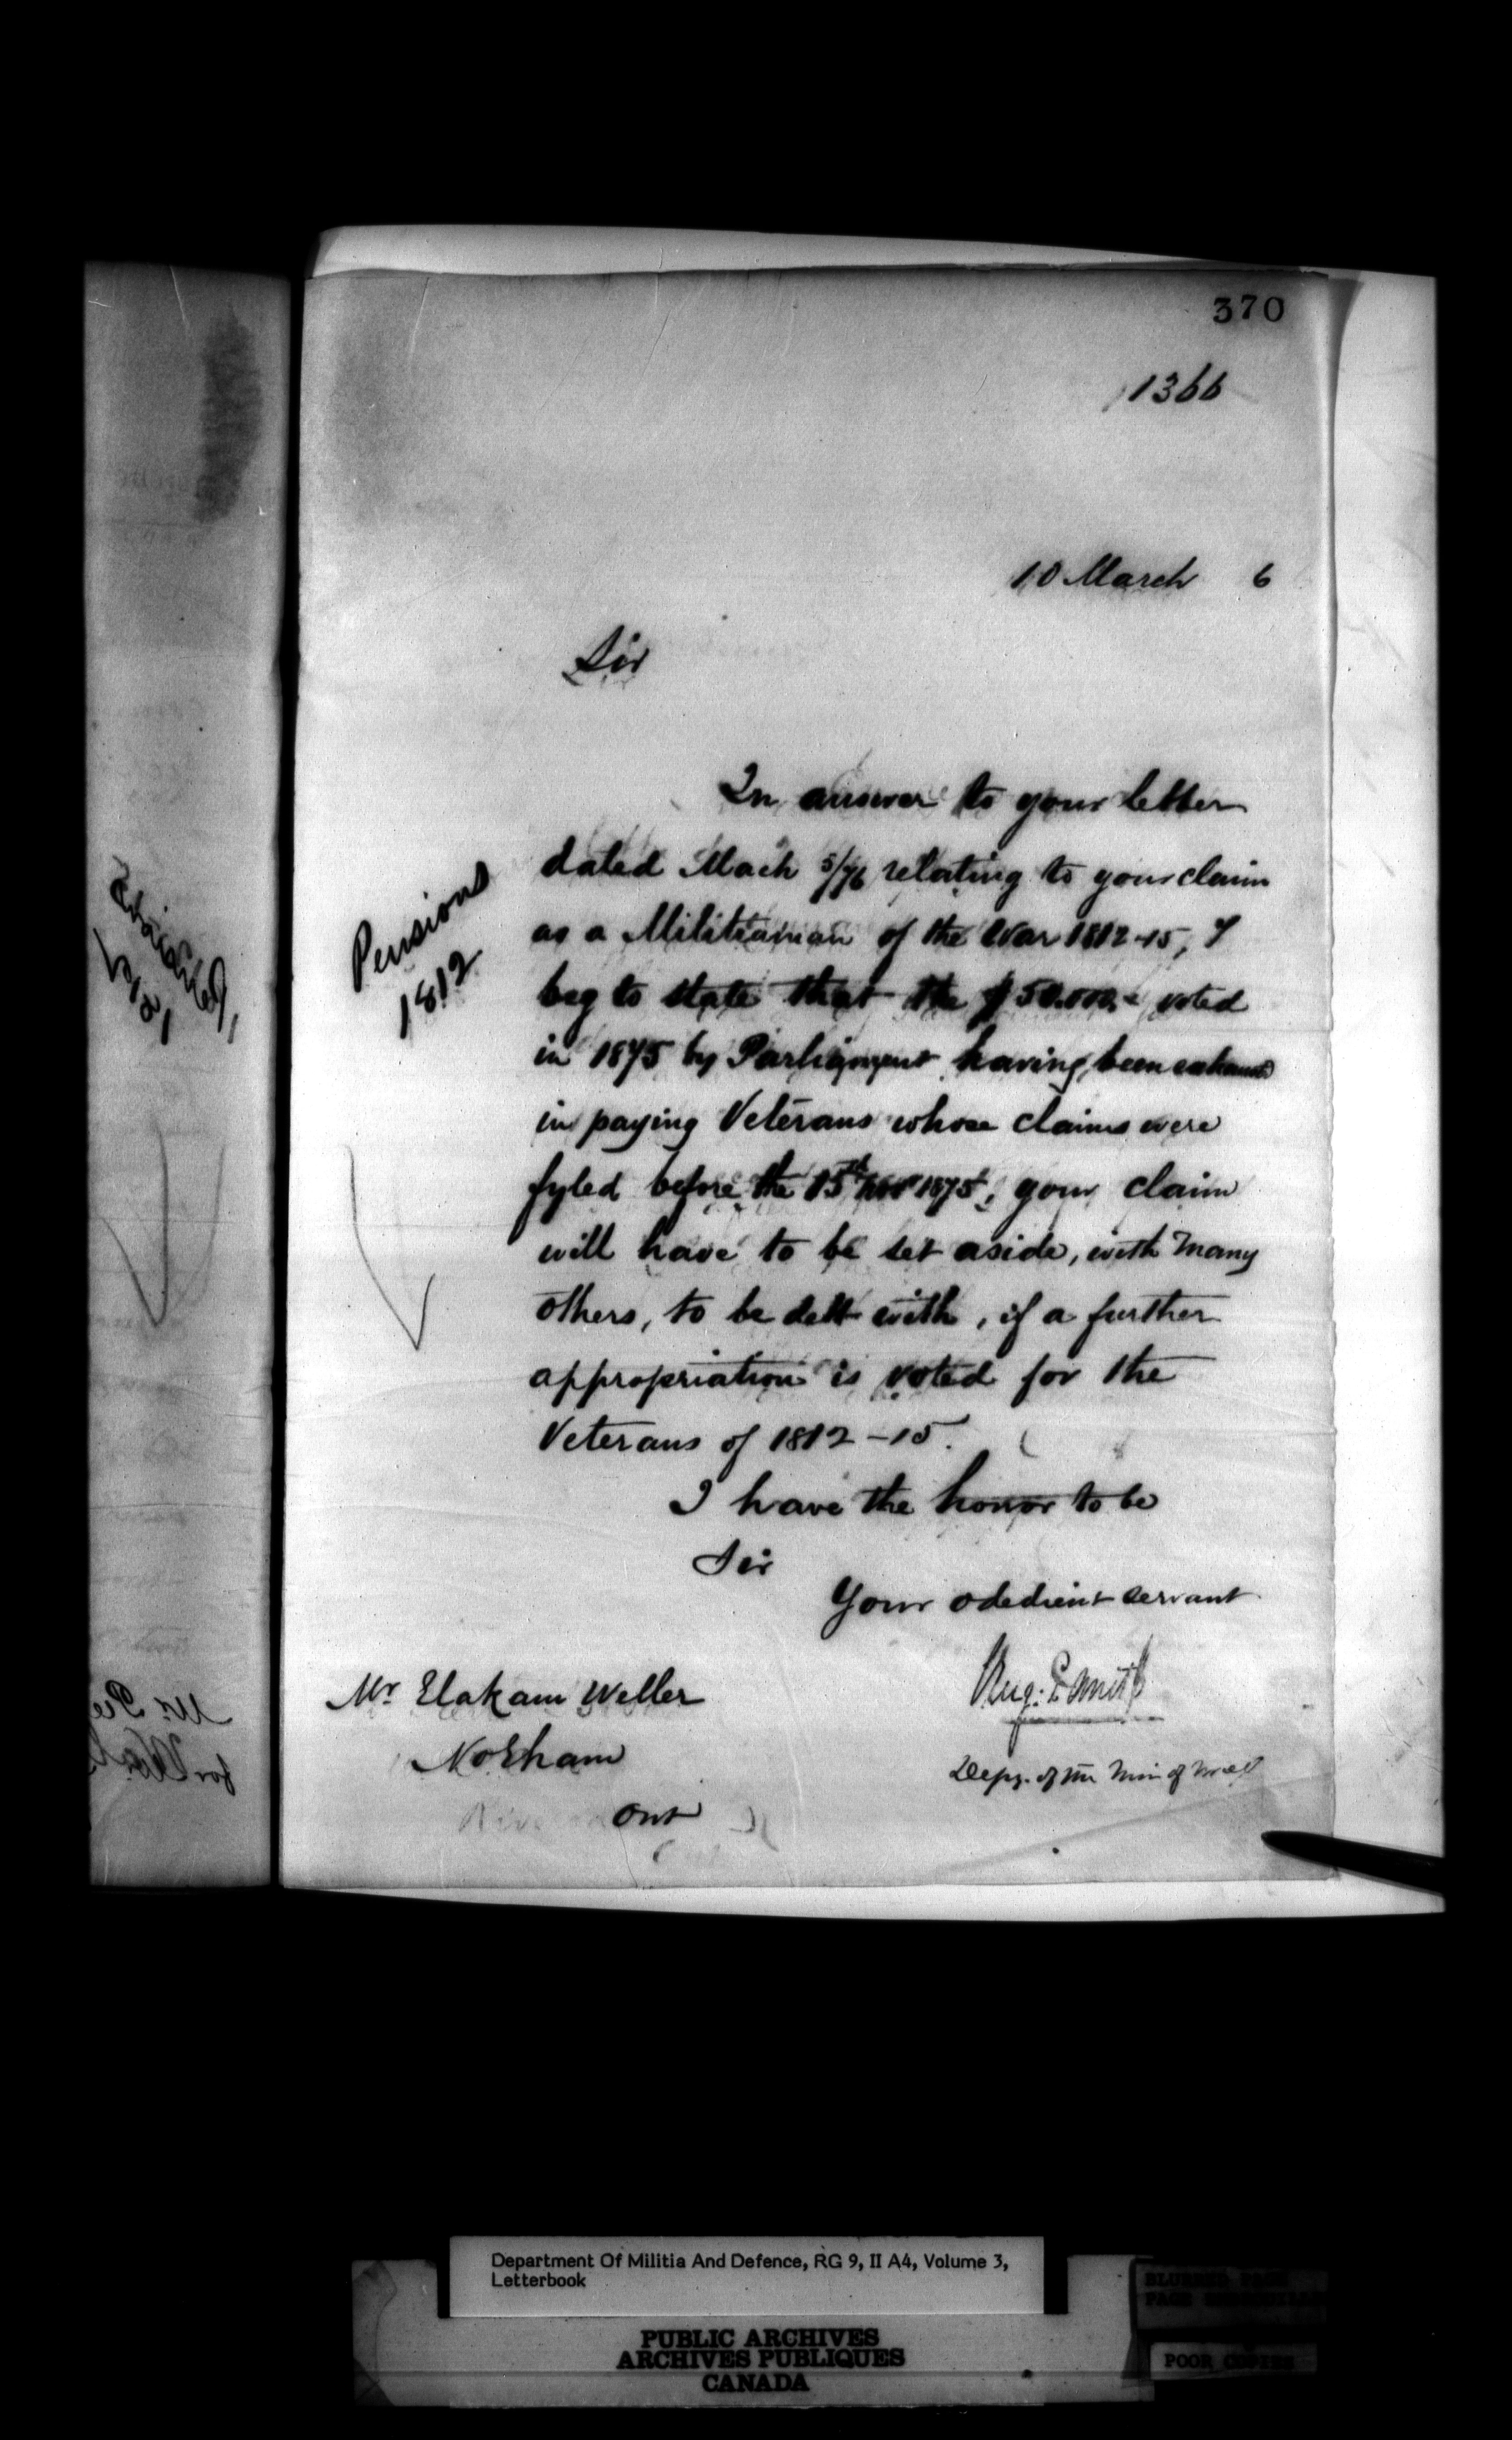 370
1366
10 March 6
Sir
In answer to your letter
dated Mach 5/76 relating to your claim
as a Militiaman of the War 1812-15, I
beg to state that the $50.000. voted
in 1875 by Parliament having been
in paying Veterans whose claims were
fyled before the 15th Nov 1875, your claim
will have to be set aside, with many
others, to be delt with, if a further
appropriation is voted for the
Veterans of 1812-15.
I have the honor to be
Sir
Your obedient servant
Pensions
1812
Mr Elakam Weller
Norham
Ont
Depy. of the Min of
Department Of Militia And Defence, RG 9, II A4, Volume 3,
Letterbook
PUBLIC ARCHIVES
ARCHIVES PUBLIQUES
CANADA
POOR COPIES